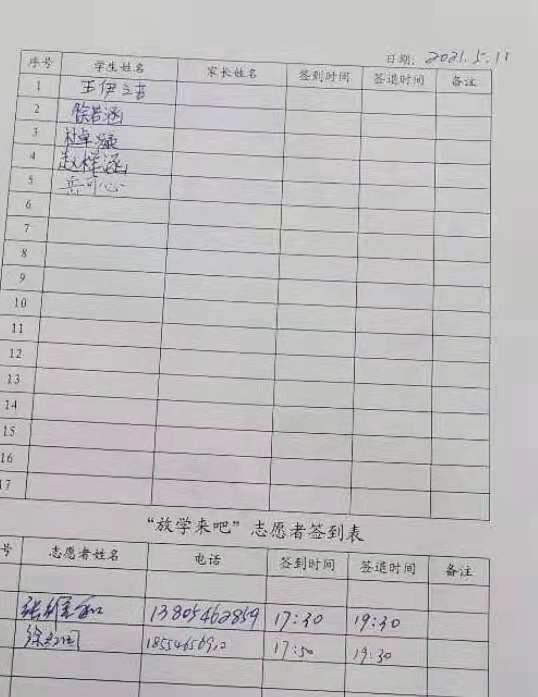 日期: 2021.5.11
序号 学生姓名 家长姓名 签到时间 签退时间 备注
1 王伊
2 徐若涵
3
4 赵梓涵
5 岳可心
6
7
8
9
10
11
12
13
14
15
16
17
“放学来吧”志愿者签到表
号 志愿者姓名 电话 签到时间 签退时间 备注
13805462859 17:30 19:30
17:50 19:30